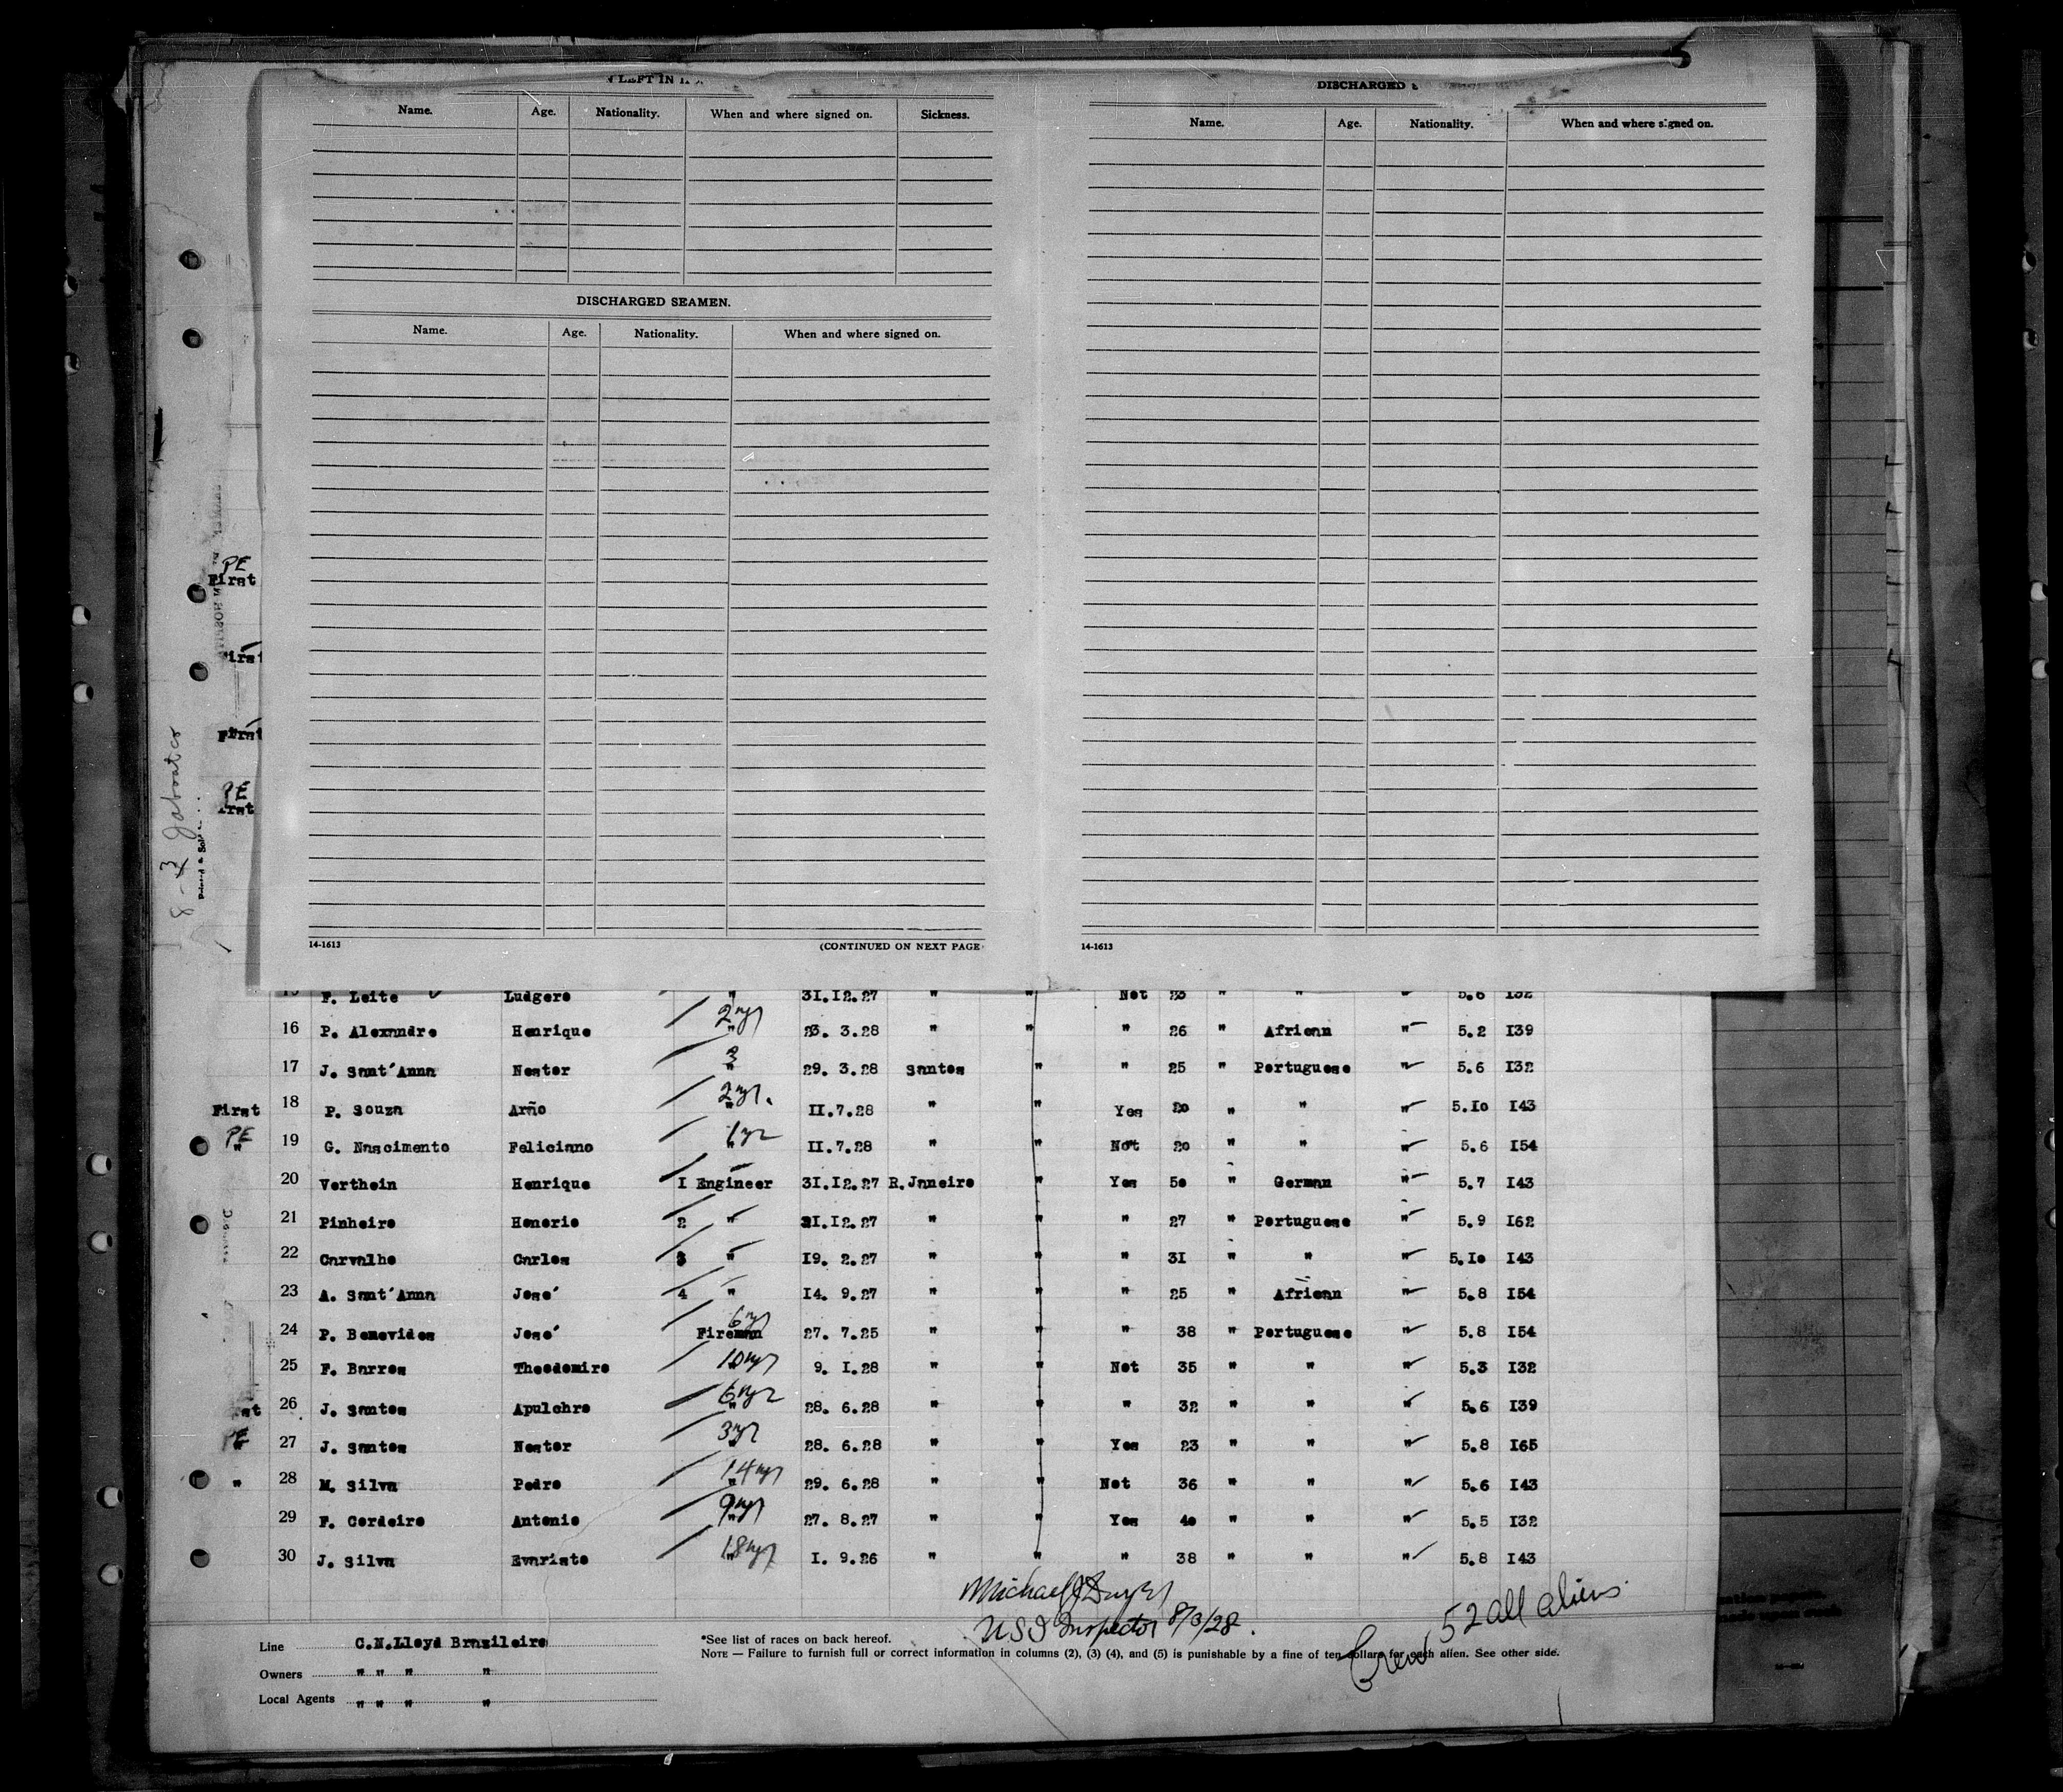 LEFT IN
Name. Age. Nationality. When and where signed on. Sickness.
DISCHARGED SEAMEN.
Name. Age. Nationality. When and where signed on.
14-1613 (CONTINUED ON NEXT PAGE
DISCHARGED
Name. Age. Nationality. When and where signed on.
14-1613
PE
First
First
PE
F. Leite Ludgero " 31.12.27 " " Not " " 5.6 132
16 P. Alexandre Henrique 2 yr " 23. 3.28 " " " 26 " African " 5.2 139
17 J. Sant'Anna Nestor 3 " 29. 3.28 Santos " " 25 " Portuguese " 5.6 132
First 18 P. Souza Arño 2 yr. " 11.7.28 " " Yes 20 " " " 5.10 143
PE " 19 G. Nascimento Feliciano 1 yr " 11.7.28 " " Not 20 " " " 5.6 154
20 Verthein Henrique I Engineer 31.12.27 R.Janeiro " Yes 50 " German " 5.7 143
21 Pinheiro Honorio 2 " 21.12.27 " " " 27 " Portuguese " 5.9 162
22 Carvalho Carlos 3 " 19. 2.27 " " " 31 " " " 5.10 143
23 A. Sant'Anna José 4 " 14. 9.27 " " " 25 " African " 5.8 154
24 P. Benevides José 6 yr Fireman 27. 7.25 " " " 38 " Portuguese " 5.8 154
25 F. Barros Theodomiro 10 yr " 9. 1.28 " " Not 35 " " " 5.3 132
26 J. Santos Apulchro 6 yr " 28. 6.28 " " " 32 " " " 5.6 139
PE 27 J. Santos Nestor 3 yr " 28. 6.28 " " Yes 23 " " " 5.8 165
" 28 M. Silva Pedro 14 yr " 29. 6.28 " " Not 36 " " " 5.6 143
29 F. Cordeiro Antonio 9 yr " 27. 8.27 " " Yes 40 " " " 5.5 132
30 J. Silva Evaristo 18 yr " 1. 9.26 " " " 38 " " " 5.8 143
Michael J Dwyer
USI Inspector 8/3/28.
Crew 52 all aliens
Line C.N.Lloyd Brazileiro
Owners " " " "
Local Agents " " " "
*See list of races on back hereof.
NOTE — Failure to furnish full or correct information in columns (2), (3) (4), and (5) is punishable by a fine of ten dollars for each alien. See other side.